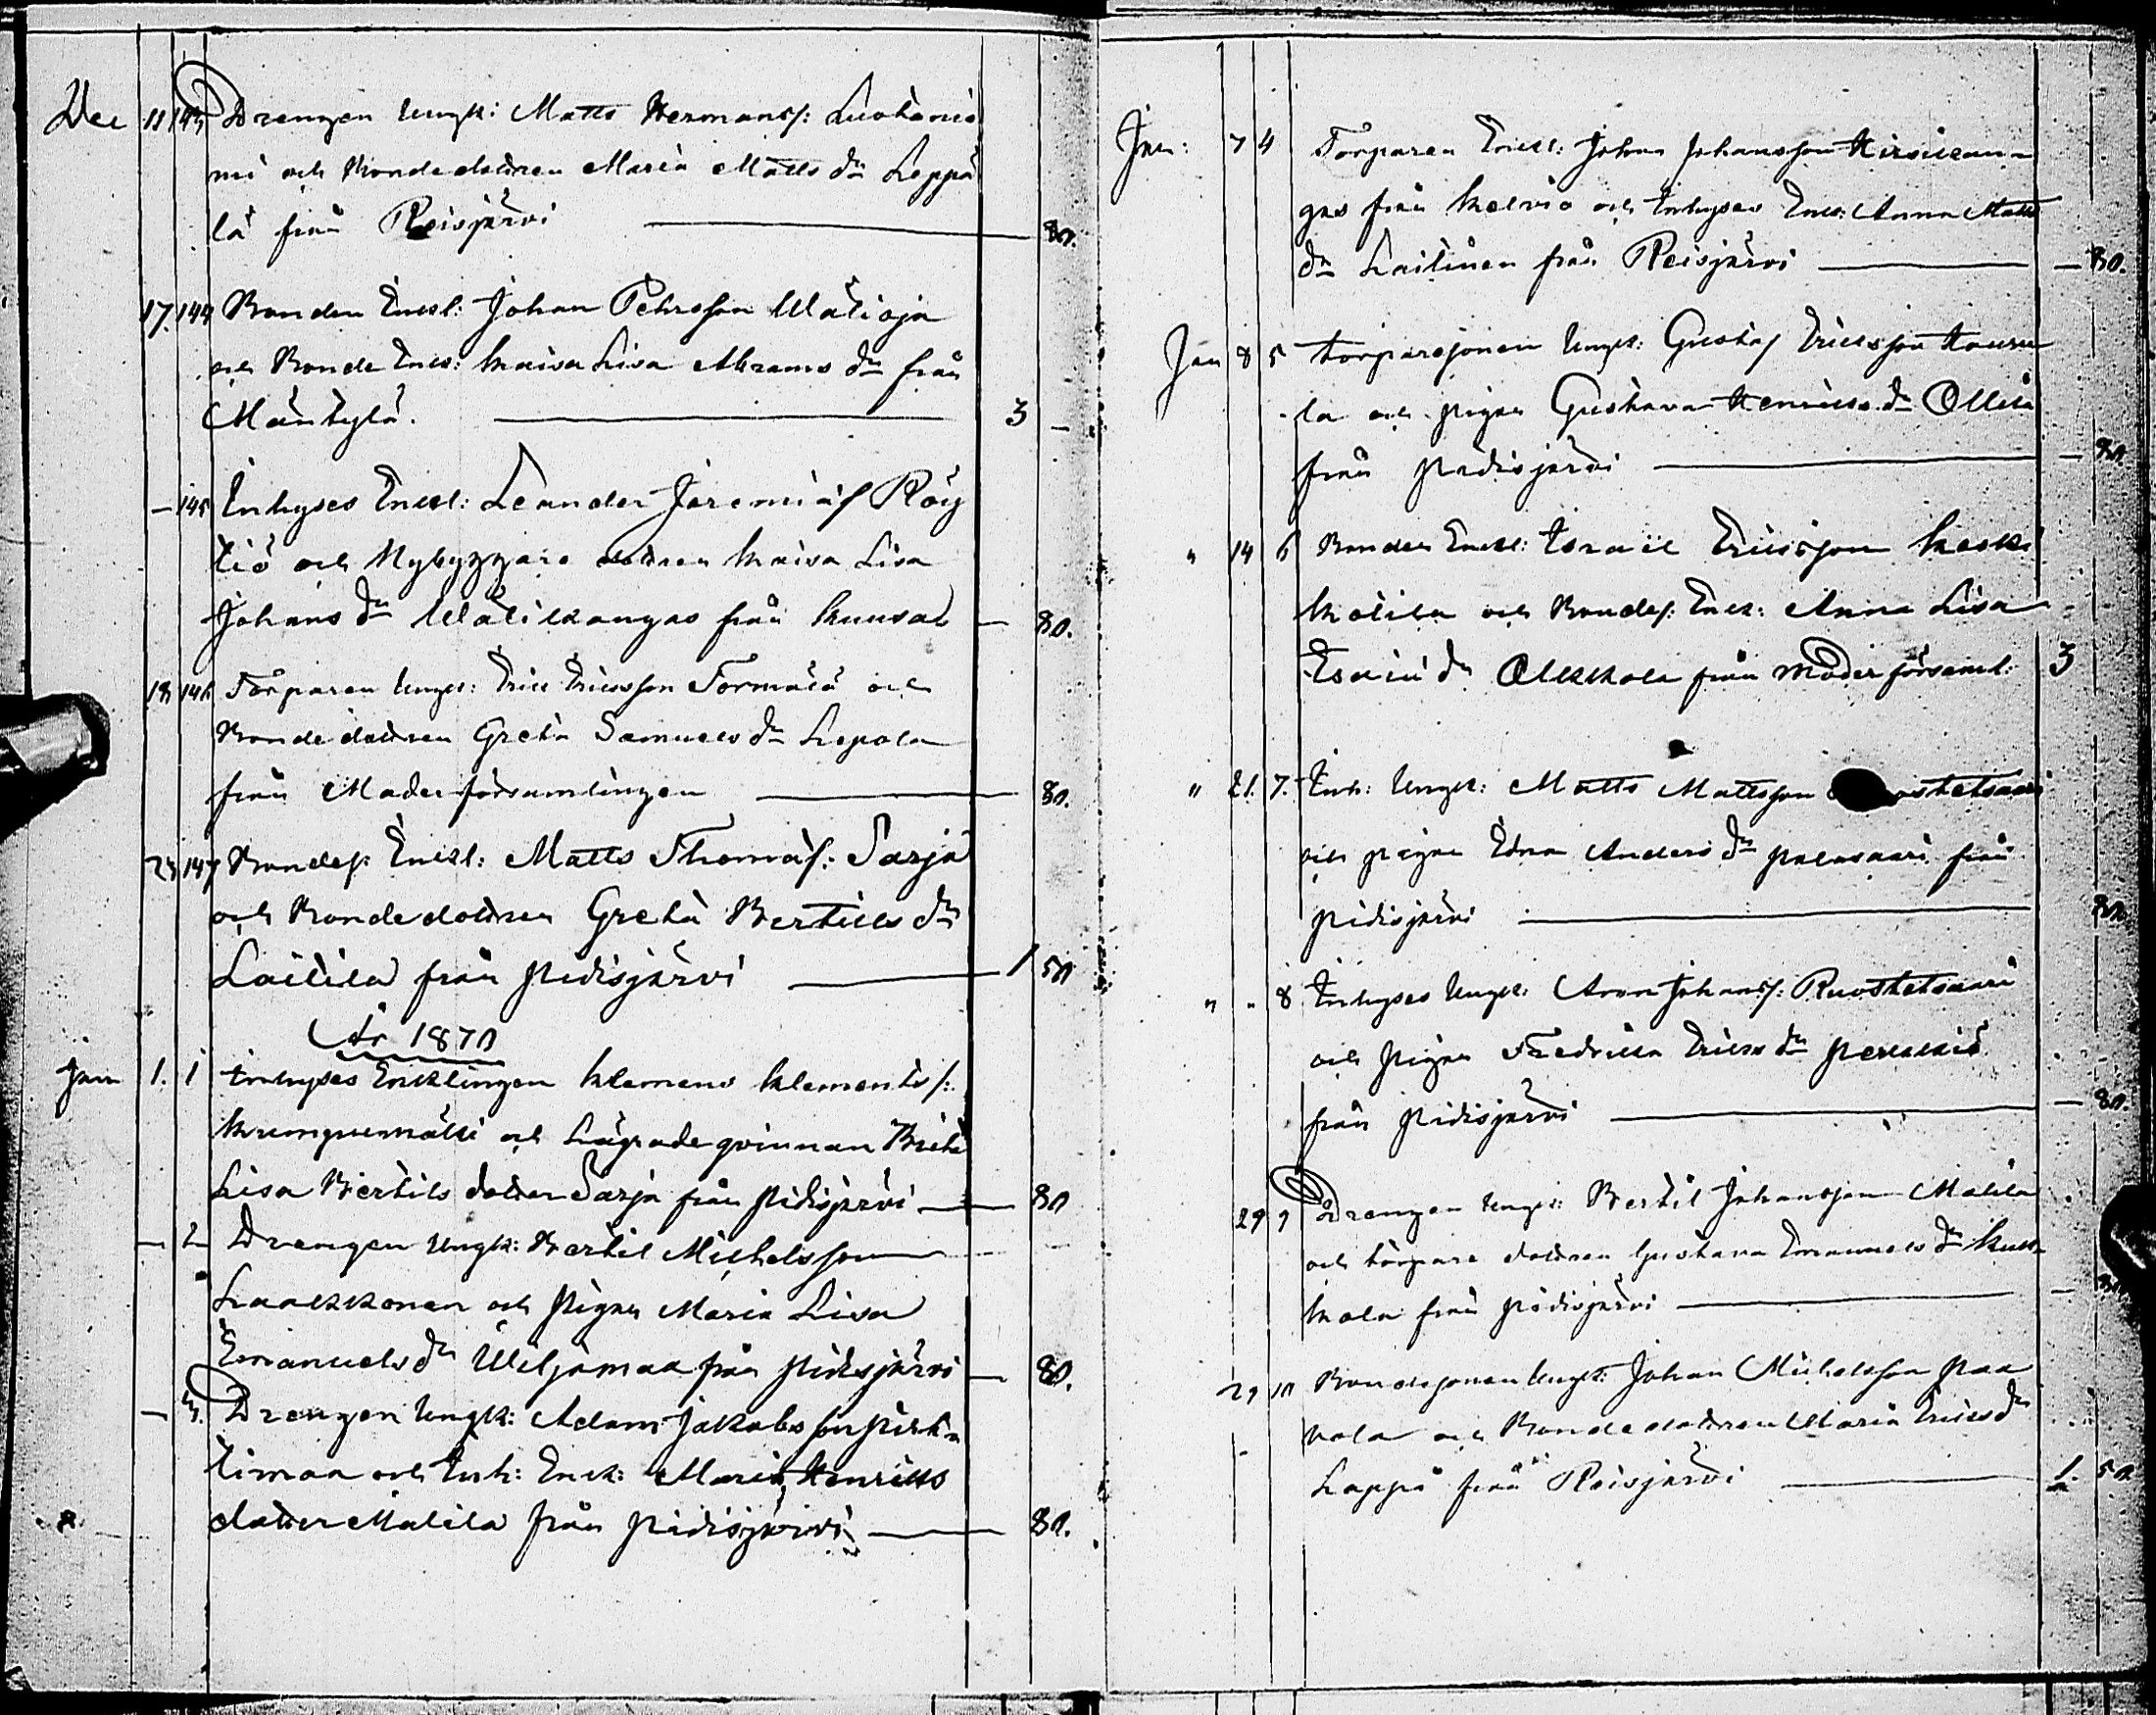 Dec 11 143 Drengen Ungk: Matts Hermanss: Luotonie
mi och Bondedottren Maria Matts dr Leppä
lä från Reisjärvi 80.
17. 144 Bonden Enkl: Johan Pehrsson Wälioja
och Bonde Enk: Kaisa Lisa Abrams dr från
Mäntylä. 3 –
– 145 Inhyses Enkl: Leander Jeremiäs Röy
tiö och Nybyggare dottren Kaisa Lisa
Johans dr Wälikangas från – 80.
18 146 Torparen Ungk: Eric Ericsson Tormälä och
Bondedottren Greta Samuels dr Lepola
från Moderförsamlingen 80.
23 147 Bondes: Enkl: Matts Thomas: Sarja
och Bondedottren Greta Bertils dr
Laitila från Pidisjärvi 1 50
År 1870
Jan 1. 1 Inhyses Enklingen Klemens Klements:
och Lägrade qvinnan Brita
Lisa Bertils dotter Sarja från Pidisjärvi 80
– 2 Drengen Ungk: Bertil Michelsson
Laakkonen och Pigan Maria Lisa
Emanuels dr Wiljamaa från Pidisjärvi – 80.
– 3. Drengen Ungk: Adam Jakobsson Pirt=
timaa och Inh: Enk: Maria Henriks
dotter Malila från Pidisjärvi 80.
Jan: 7 4 Torparen Enkl: Johan Johansson Hirsikan=
gas från Kelviä och Inhyses Enk: Anna Matts
dr Laitinen från Reisjärvi – 80.
Jan 8 5 Torparesonen Ungk: Gustaf Ericsson Kauru
la och Pigan Gustava Henriks dr Ollila
från Pidisjärvi – 80.
" 14 6 Bonden Enkl: Israil Ericsson Keski
och Bondes: Enk: Anna Lisa
Esaiæ dr Olkkola från Moderförsaml: 3
" 21. 7. Inh: Ungk: Matts Mattsson ostetsaari
och Pigan Edna Anders dr Palosaari från
Pidisjärvi 80
" " 8 Inhyses Ungk: Aron Johanss: Ruostetsaari
och Pigan Fredrika Ericks dr Perkkiö
från Pidisjärvi – 80.
29 9 Drengen Ungk: Bertil Johansson Malila
och torpare dottren Gustava Emanuels dr
kola från Pidisjärvi – 80
29 10 Bondesonen Ungk: Johan Michelsson Paa
vola och Bondedottren Maria Ericks dr
Leppä från Reisjärvi 1. 50